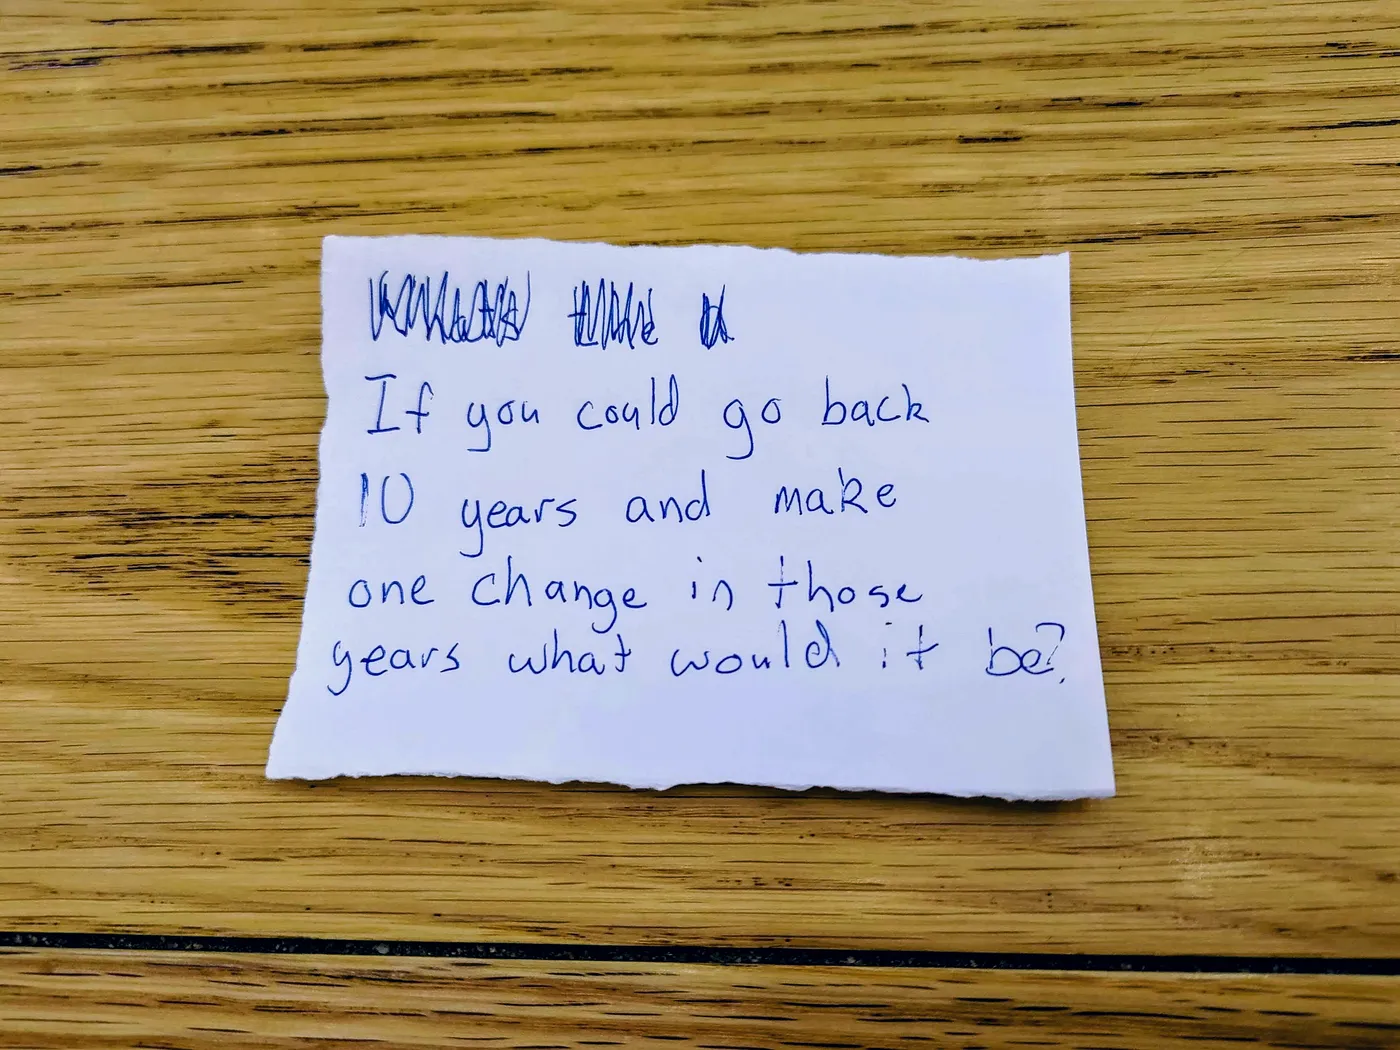 If you could go back
10 years and make
one change in those
years what would it be?